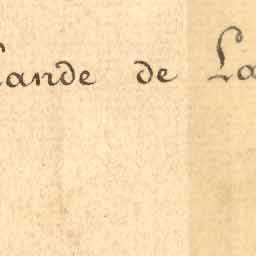 lande de La